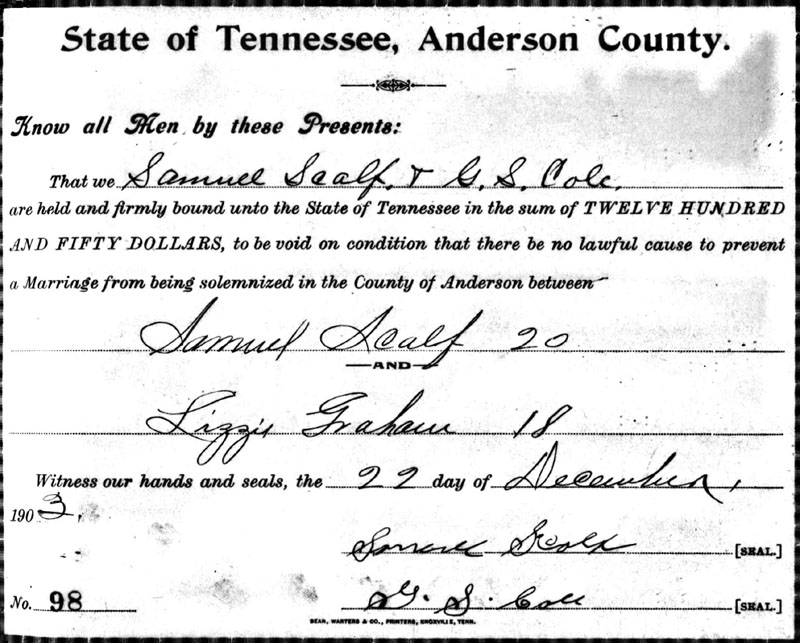 State of Tennessee, Anderson County.
Know all Men by these Presents:
That we Samuel Scalf, & G. S. Cole.
are held and firmly bound unto the State of Tennessee in the sum of TWELVE HUNDRED
AND FIFTY DOLLARS, to be void on condition that there be no lawful cause to prevent
a Marriage from being solemnized in the County of Anderson between
Samuel Scalf 20
—AND—
Lizzie Graham 18
Witness our hands and seals, the 22 day of December,
1903,
Samuel Scalf [SEAL.]
No. 98 G. S. Cole [SEAL.]
BEAN, WARTERS & CO., PRINTERS, KNOXVILLE, TENN.